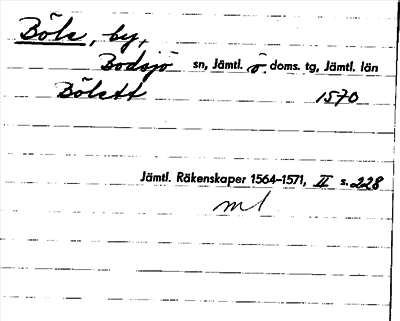 Böle, by,
Bodsjö sn, Jämtl. ö. doms. tg, Jämtl. län
Bölett 1570
Jämtl. Räkenskaper 1564–1571, II s. 228
ml